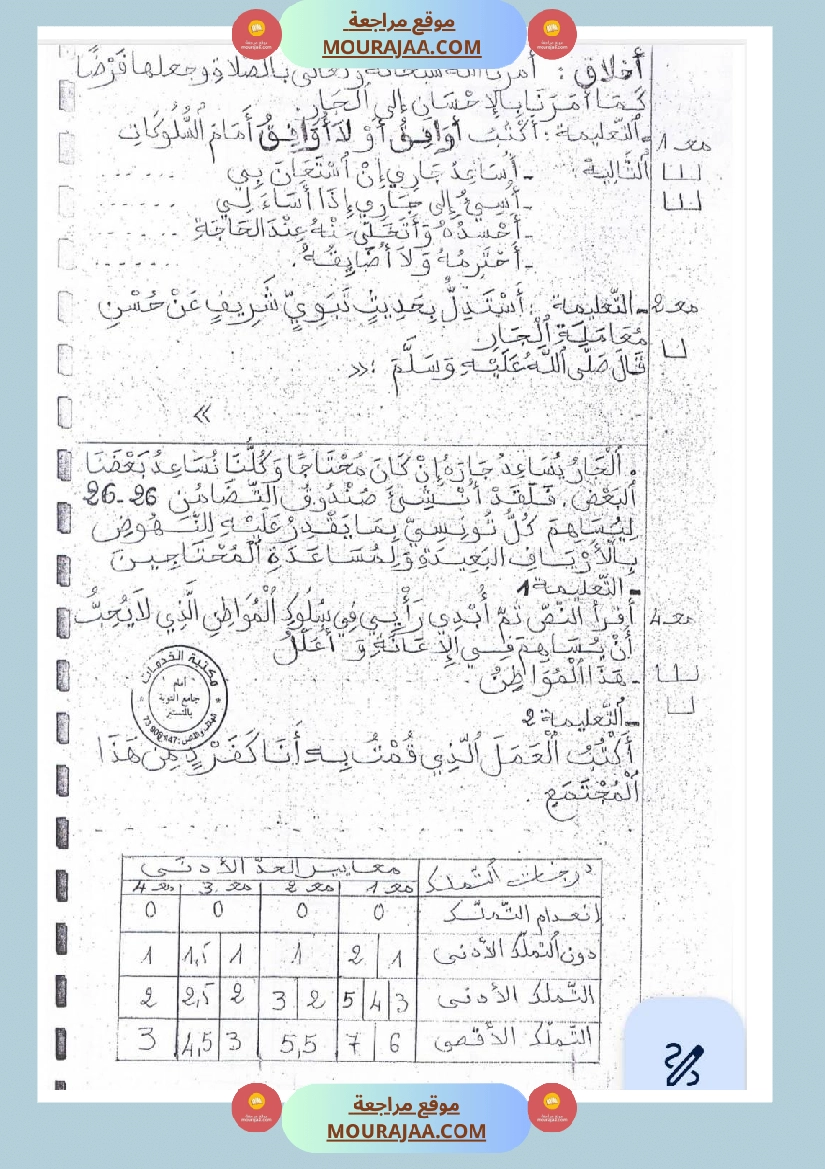 موقع مراجعة
MOURAJAA.COM
أخلاق : أمرنا الله سبحانه وتعالى بالصلاة وجعلها فَرْضًا
كَمَا أَمَرَنَا بِالإِحْسَانِ إِلى الجَارِ.
مع 1 - التّعليمة : أَكْتُبُ أُوَافِقُ أَوْ لَا أُوَافِقُ أَمَامَ السُّلُوكَاتِ
التَّالِيةِ - أُسَاعِدُ جَارِي إِنْ اسْتَعَانَ بِي .......
- أُسِيءُ إِلى جَارِي إِذَا أَسَاءَ لِي .......
- أَحْسدُهُ وَأَتَخَلَّى عَنْهُ عِنْدَ الحَاجَةِ .......
- أَحْتَرِمُهُ وَلَا أُضَايِقُهُ. .......
مع 2 - التّعليمة : أَسْتَدِلُّ بِحَدِيثٍ نَبَوِيٍّ شَرِيفٍ عَنْ حُسْنِ
مُعَامَلَةِ الْجَارِ
قَالَ صَلَّى اللَّهُ عَلَيْهِ وَسَلَّمَ : «
»
. الْجَارُ يُسَاعِدُ جَارَهُ إِنْ كَانَ مُحْتَاجًا وَكُلُّنَا نُسَاعِدُ بَعْضَنَا
البَعْضَ. فَلَقَدْ أُنْشِئَ صُنْدُوقُ التَّضَامُنِ 26-26
لِيُسَاهِمَ كُلُّ تُونِسِيٍّ بِمَا يَقْدِرُ عَلَيْهِ لِلنُّهُوضِ
بِالْأَرْيَافِ البَعِيدَةِ وَلِمُسَاعَدَةِ الْمُحْتَاجِينَ
- التّعليمة 1
مع 4 أَقْرَأُ النَّصَّ ثُمَّ أُبْدِي رَأْيِي فِي سُلُوكِ الْمُوَاطِنِ الَّذِي لَا يُحِبُّ
أَنْ يُسَاهِمَ فِي الإِعَانَةِ وَ أُعَلِّلُ
- هَذَا الْمُوَاطِنُ
- التّعليمة 2
أَكْتُبُ الْعَمَلَ الَّذِي قُمْتُ بِهِ أَنَا كَفَرْدٍ مِنْ هَذَا
الْمُجْتَمَعِ.
مكتبة الخدمات
أمام
جامع التوبة
درجات التملك معايير الحدّ الأدنى
مع 1 مع 2 مع 3 مع 4
انعدام التملّك 0 0 0 0
دون التملّك الأدنى 1 2 1 1 1,5 1
التّملّك الأدنى 3 4 5 2 3 2 2,5 2
التّملّك الأقصى 6 7 5,5 3 4,5 3
موقع مراجعة
MOURAJAA.COM